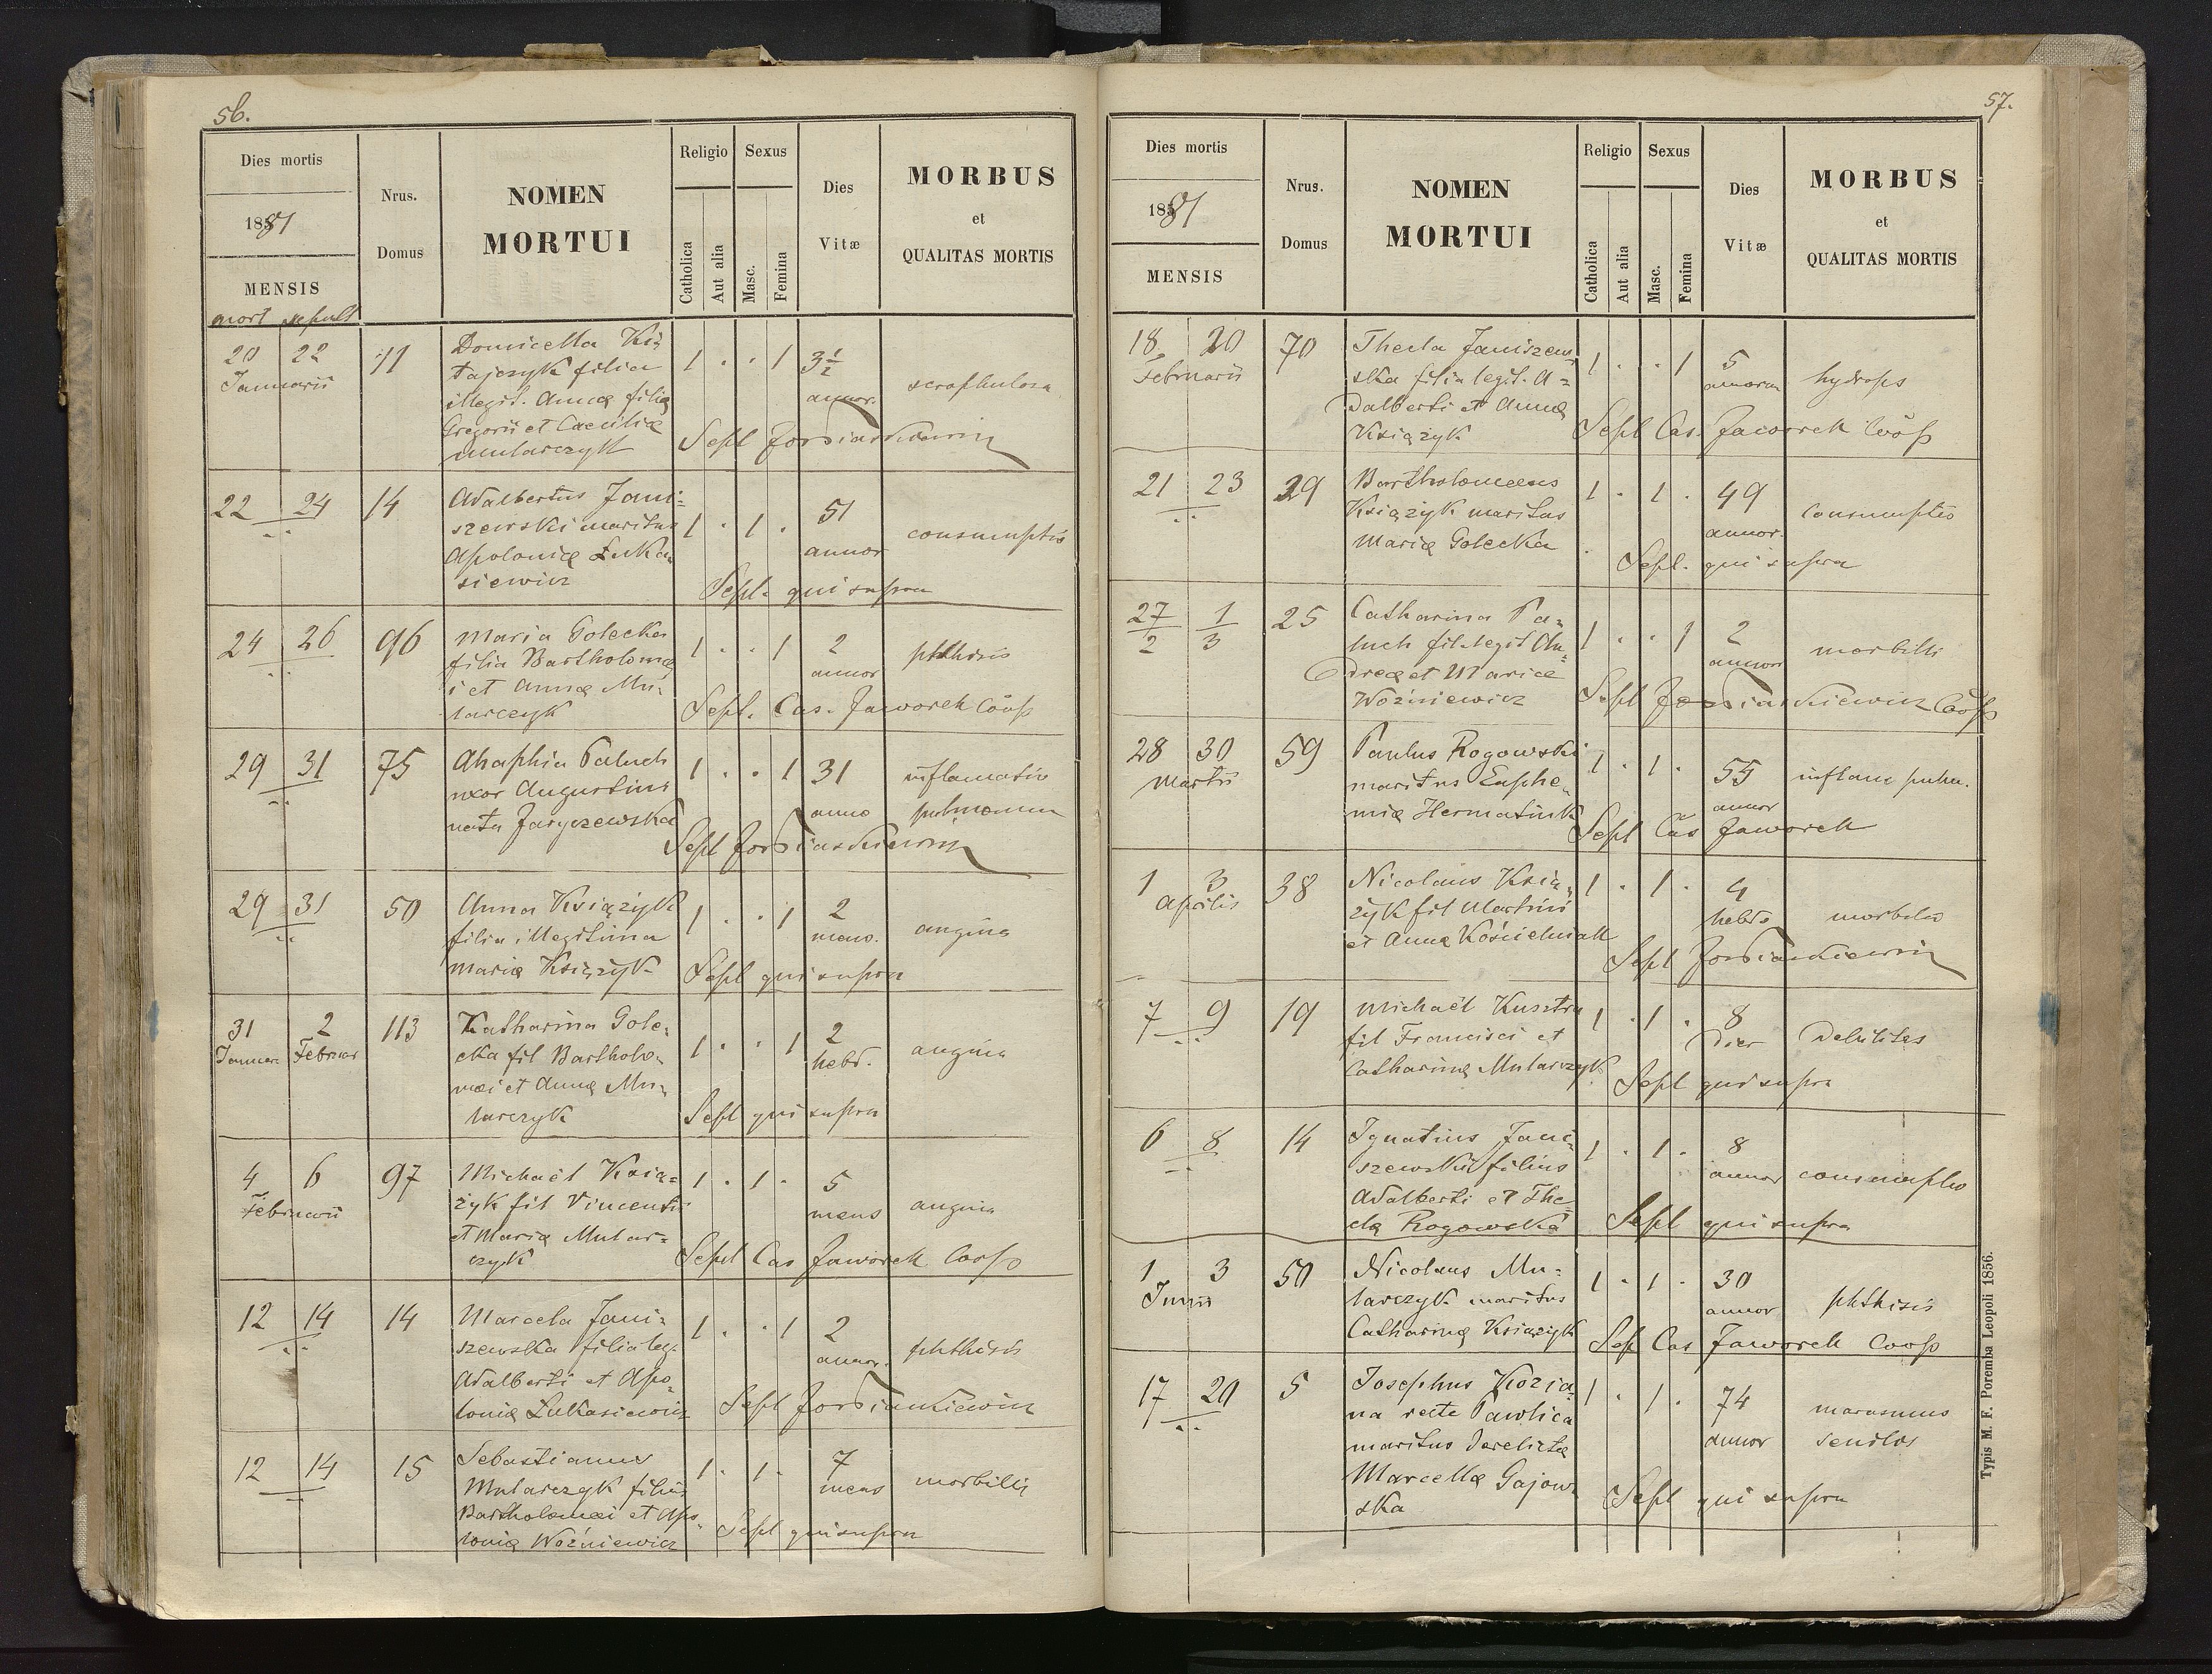 56.
Dies mortis
1881
MENSIS
mort sepult
Nrus.
Domus
NOMEN
MORTUI
Religio
Catholica
Aut alia
Sexus
Masc.
Femina
Dies
Vitæ
MORBUS
et
QUALITAS MORTIS
20 22 11 Domicella Ki-
Januarii tajczyk filia 1 . . 1 3½
illegit. Annæ filiæ annor. scrophulosa
Gregorii et Caeciliæ
Mularczyk Sepl Jordiankiewicz
22 24 14 Adalbertus Jani-
szewski maritus 1 . 1 . 51
Apoloniæ Łuka- annor consumptio
siewicz Sepl. qui supra
24 26 96 Maria Golecka
filia Bartholomæ 1 . . 1 2 phthisis
i et Annæ Mu- annor
larczyk Sepl. Cas. Jaworek Coop
29 31 75 Ahaphia Paluch
uxor Augustini 1 . . 1 31 inflamatio
nata Jaryczewska anno pulmonum
Sepl Jordiankiewicz
29 31 50 Anna Książyk
filia illegitima 1 . . 1 2 angina
Mariæ Książyk mens.
Sepl qui supra
31 2 113 Katharina Gole-
Januar. Februar cka fil Bartholo- 1 . . 1 2 angina
mæi et Annæ Mu- hebd.
larczyk Sepl qui supra
4 6 97 Michaël Ksią-
Februarii żyk fil Vincenti 1 . 1 . 5 angina
et Mariæ Mular- mens
czyk Sepul Cas Jaworek Coop
12 14 14 Marcela Jani-
szewska filia leg. 1 . . 1 2 phthisis
Adalberti et Apo- annor.
loniæ Łukasiewicz Sepl Jordiankiewicz
12 14 15 Sebastianus
Mularczyk filius 1 . 1 . 7 morbilli
Bartholomæi et Apo- mens
loniæ Woźniewicz Sepl qui supra
57.
Dies mortis
1881
MENSIS
Nrus.
Domus
NOMEN
MORTUI
Religio
Catholica
Aut alia
Sexus
Masc.
Femina
Dies
Vitæ
MORBUS
et
QUALITAS MORTIS
18 20 70 Thecla Janiszew-
Februarii ska filia legit. A- 1 . . 1 5 hydrops
dalberti et Annæ annorum
Książyk Sepl Cas. Jaworek Coop
21 23 29 Bartholomeus
Książyk maritus 1 . 1 . 49 consumptio
Mariæ Golecka annor.
Sepl. qui supra
27/2 1/3 25 Catharina Pa-
luch fil legit An- 1 . . 1 2 morbilli
dreæ et Mariæ annor
Woźniewicz Sepl Jordiankiewicz Coop
28 30 59 Paulus Rogowski
Martii maritus Euphe- 1 . 1 . 55 inflam pulm.
miæ Hermatiuk annor
Sepl Cas Jaworek
1 3 38 Nicolaus Ksią-
Aprilis żyk fil Martini 1 . 1 . 4
et Annæ Kościelniak hebd morbilis
Sepl Jordiankiewicz
7 9 19 Michaël Kusztra
fil Francisci et 1 . 1 . 8 Debilitas
Catharinæ Mularczyk dier
Sepl qui supra
6 8 14 Ignatius Jani-
szewski filius 1 . 1 . 8
Adalberti et The- annor consumptio
clæ Rogowska Sepl qui supra
1 3 50 Nicolaus Mu-
Junii larczyk maritus 1 . 1 . 30 phthisis
Catharinæ Książyk annor
Sepl Cas Jaworek Coop
17 20 5 Josephus Kozia-
na recte Pawlica 1 . 1 . 74 marasmus
maritus derelictæ annor senilis
Marcellæ Gajow-
ska Sepl qui supra
Typis M. F. Poremba Leopoli 1856.